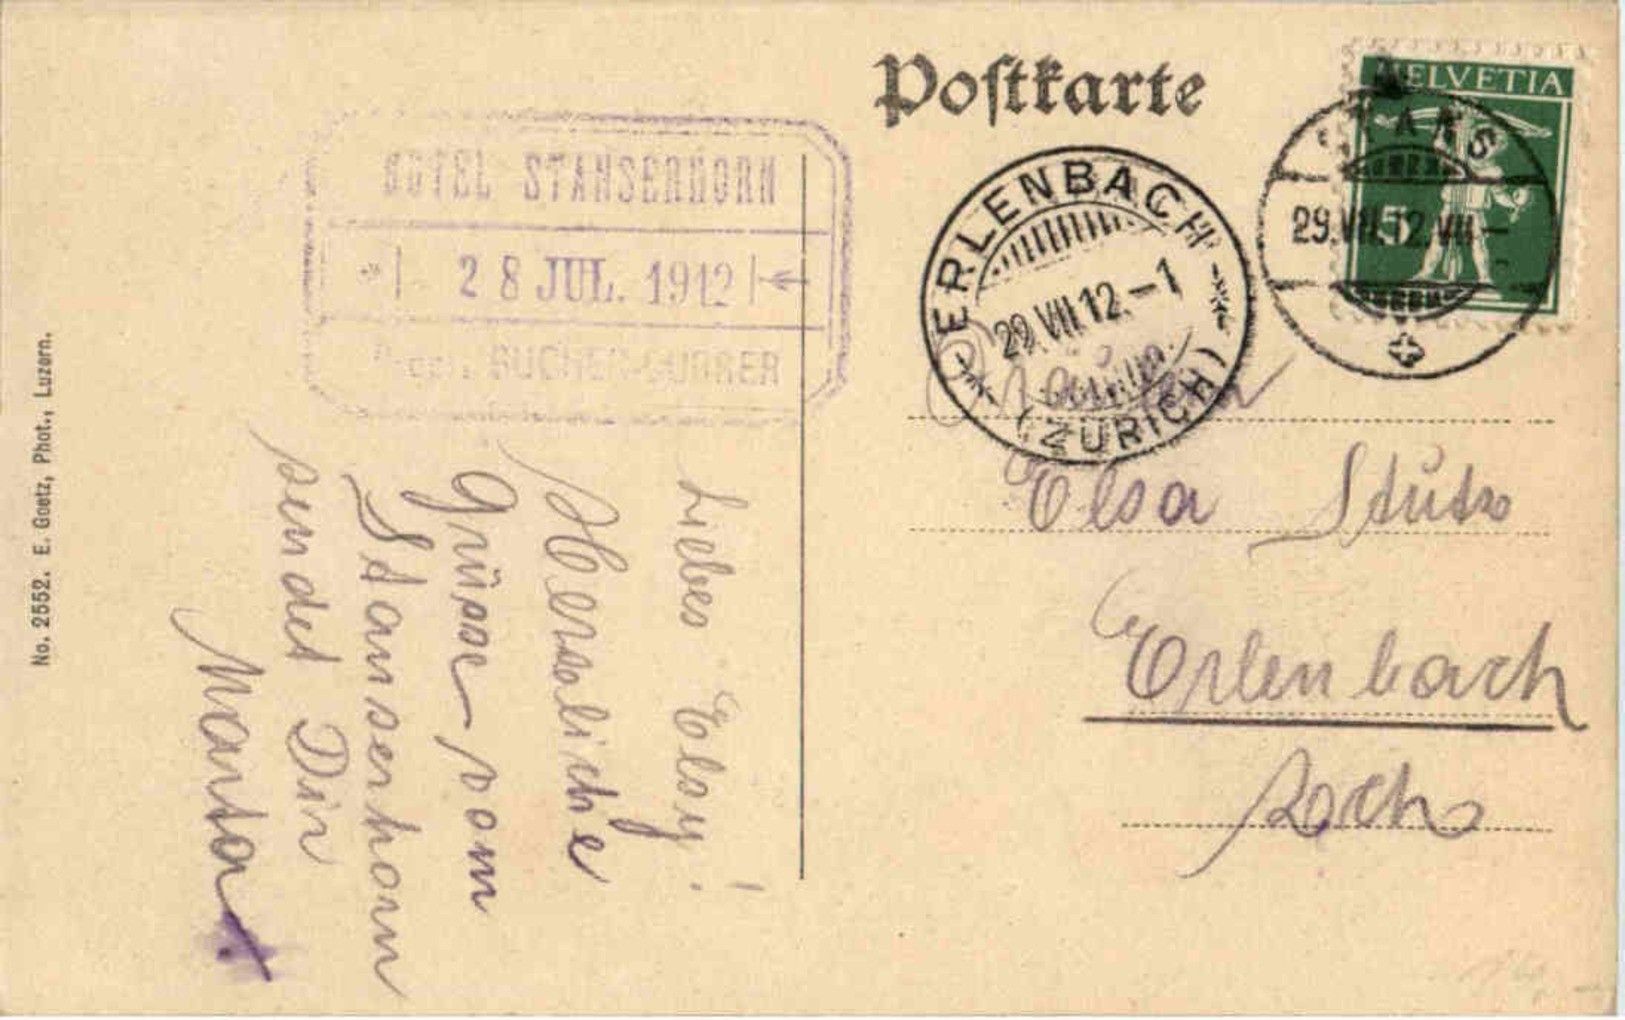 Postkarte
HELVETIA
5
STANS
29.VII.12.VII-
ERLENBACH
29.VII.12.-1
(ZÜRICH)
HOTEL STANSERHORN
28 JUL. 1912
BUCHER-DURRER
No. 2552. E. Goetz, Phot., Luzern.
Liebes Elsy!
Herzliche
Grüsse vom
Stanserhorn
sendet Dir
Marta.
Elsa Stutz
Erlenbach